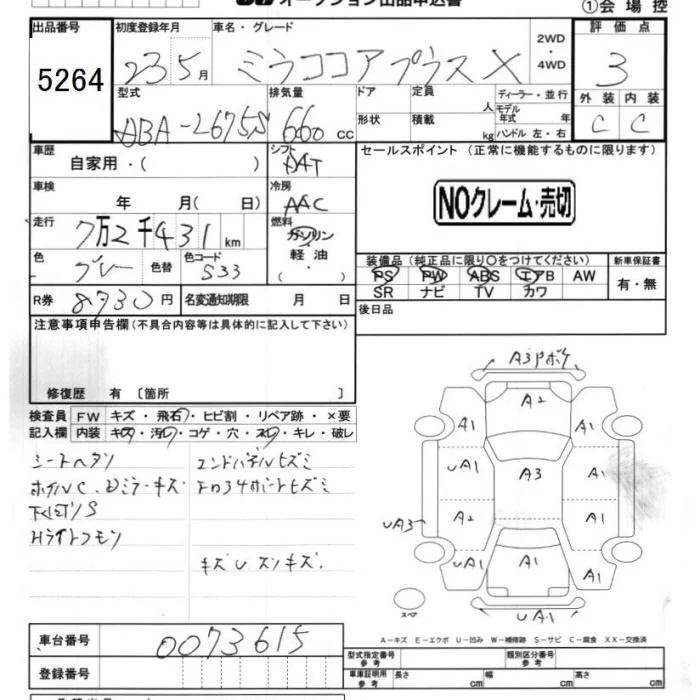 オークション出品申込書
①会場控
出品番号 初度登録年月 車名・グレード 2WD・4WD 評価点
5264 23 5月 ミラココアプラス X 3
型式 排気量 ドア 定員 人 ディーラー・並行 外装 内装
DBA-L675S 660 CC 形状 積載 kg モデル年式 年 ハンドル 左・右 C C
車歴 自家用・( ) シフト DAT セールスポイント (正常に機能するものに限ります)
車検 年 月( 日) 冷房 AAC NOクレーム・売切
走行 7万2千431km 燃料 ガソリン 軽油・( )
色 グレー 色替 色コード S33 装備品(純正品に限り○をつけてください) 新車保証書
PS PW ABS エアB AW 有・無
SR ナビ TV カワ
R券 8730円 名変通知期限 月 日 後日品
注意事項申告欄(不具合内容等は具体的に記入して下さい)
修復歴 有 〔箇所 〕
検査員 FW キズ・飛石・ヒビ割・リペア跡・×要
記入欄 内装 キズ・汚レ・コゲ・穴・スレ・キレ・破レ
シートヘタリ エンドパネルヒズミ
ホイルC、Dミラーキズ
下廻りS
Hライトクモリ
キズU スリキズ
A3Pボケ
A2
A1 A1
UA1 A3 A1
UA3 A2 A1
UA1 A1 A1
UA1
スペア
A－キズ E－エクボ U－凹み W－補修跡 S－サビ C－腐食 XX－交換済
車台番号 0073615
型式指定番号 参考 類別区分番号 参考
登録番号 車庫証明用 参考 長さ cm 幅 cm 高さ cm